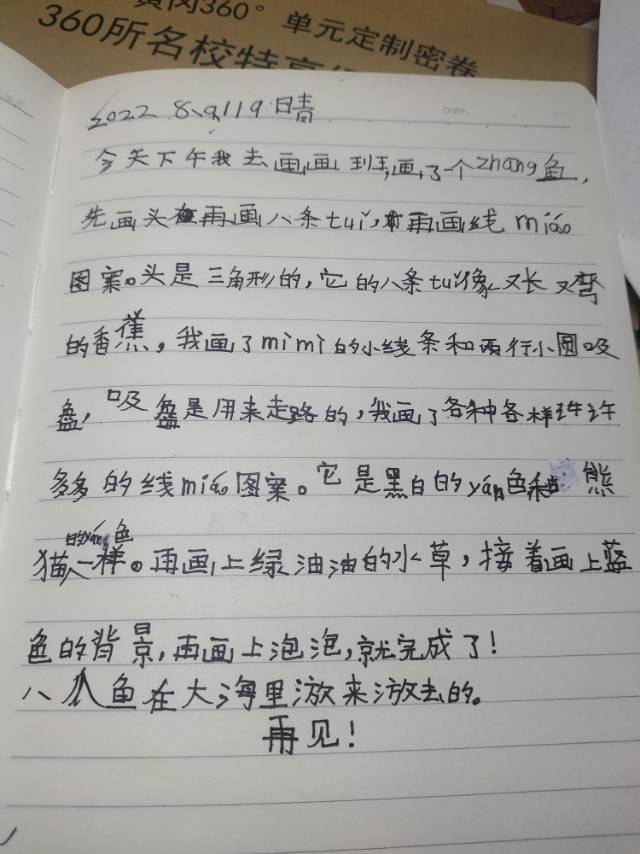 黄冈360° 单元定制密卷
360所名校特高级
Date.
2022 8、9、119 日晴
今天下午我去画画班,画了一个zhang鱼,
先画头再画八条tuǐ,再画线miáo
图案。头是三角形的,它的八条tuǐ像又长又弯
的香蕉,我画了mìmì的小线条和两行小圆吸
盘,吸盘是用来走路的,我画了各种各样许许
多多的线miáo图案。它是黑白的yán色和熊
猫的yán色一样。再画上绿油油的水草,接着画上蓝
色的背景,再画上泡泡,就完成了!
八爪鱼在大海里游来游去的。
再见!